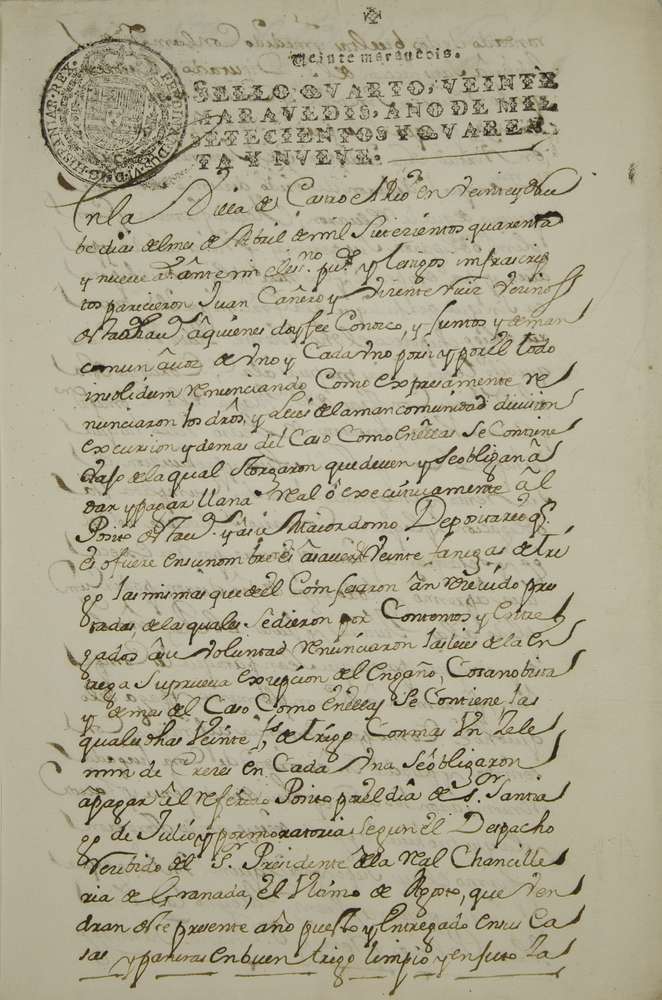 Veinte maravedis.
SELLO QVARTO, VEINTE
MARAVEDIS, AÑO DE MIL
SETECIENTOS Y QVAREN
TA Y NVEVE.
HISPANIAR. REX
En la Villa de Castro el Rio en Veinte y
dias del mes de Abril de mil Setezientos quarenta
y nueve a.s ante mi el es.no pu.co y testigos infrascrip
tos parecieron Juan Cañero y Vizente Ruiz Vezinos
de esta aquienes doy fee Conozco, y Juntos y de man
comun avoz de Vno y Cada Vno por si y por el todo
insolidum renunciando Como expresamente re
nunciaron los dros, y Leies de la mancomunidad division
excursion y demas del Caso Como en ellas Se Contiene
de la qual otorgaron que deven y Se obligan a
dar y pagar llana Real ô executivamente al
Posito de y a su Maiordomo Depositario q.
es o fuere en su nombre es asaver Veinte fanegas de tri
go las mismas que de el Confesaron an rezivido pres
tadas, de las quales Se dieron por Contentos y entre
gados a su Voluntad renunciaron las leies de la en
trega Su prueva exepcion del Engaño, Cosa no vista
y demas del Caso Como en ellas Se Contiene las
quales dhas Veinte f.s de trigo Con mas Vn zele
min de Creces en Cada Vna Se obligaron
a pagar al referido Posito por el dia de S.or Santia
go de Julio y por moratoria segun el Despacho
Rezibido del S.r Presidente de la Real Chancille
ria de Granada, el Vltimo de Agosto, que ven
dran de este presente año puesto y Entregado en sus Ca
sas y paneras en buen trigo limpio y enjuto la